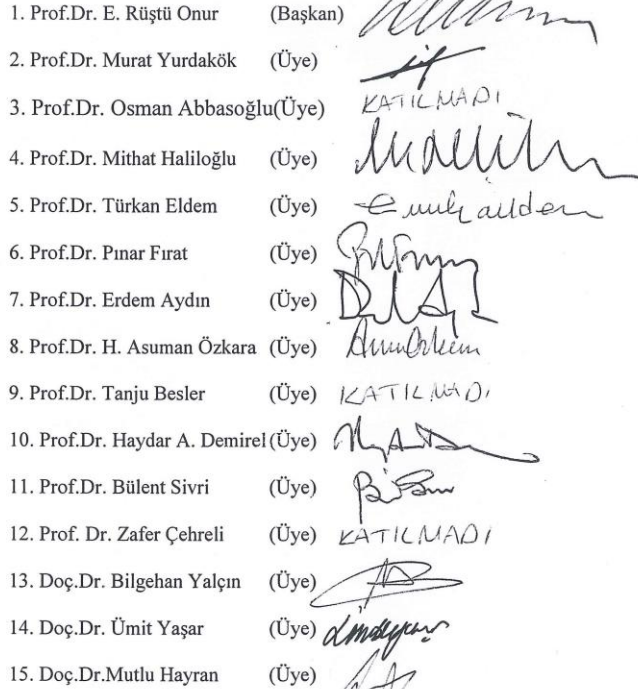 1. Prof.Dr. E. Rüştü Onur (Başkan)
2. Prof.Dr. Murat Yurdakök (Üye)
3. Prof.Dr. Osman Abbasoğlu(Üye) KATILMADI
4. Prof.Dr. Mithat Haliloğlu (Üye)
5. Prof.Dr. Türkan Eldem (Üye)
6. Prof.Dr. Pınar Fırat (Üye)
7. Prof.Dr. Erdem Aydın (Üye)
8. Prof.Dr. H. Asuman Özkara (Üye)
9. Prof.Dr. Tanju Besler (Üye) KATILMADI
10. Prof.Dr. Haydar A. Demirel(Üye)
11. Prof.Dr. Bülent Sivri (Üye)
12. Prof. Dr. Zafer Çehreli (Üye) KATILMADI
13. Doç.Dr. Bilgehan Yalçın (Üye)
14. Doç.Dr. Ümit Yaşar (Üye)
15. Doç.Dr.Mutlu Hayran (Üye)